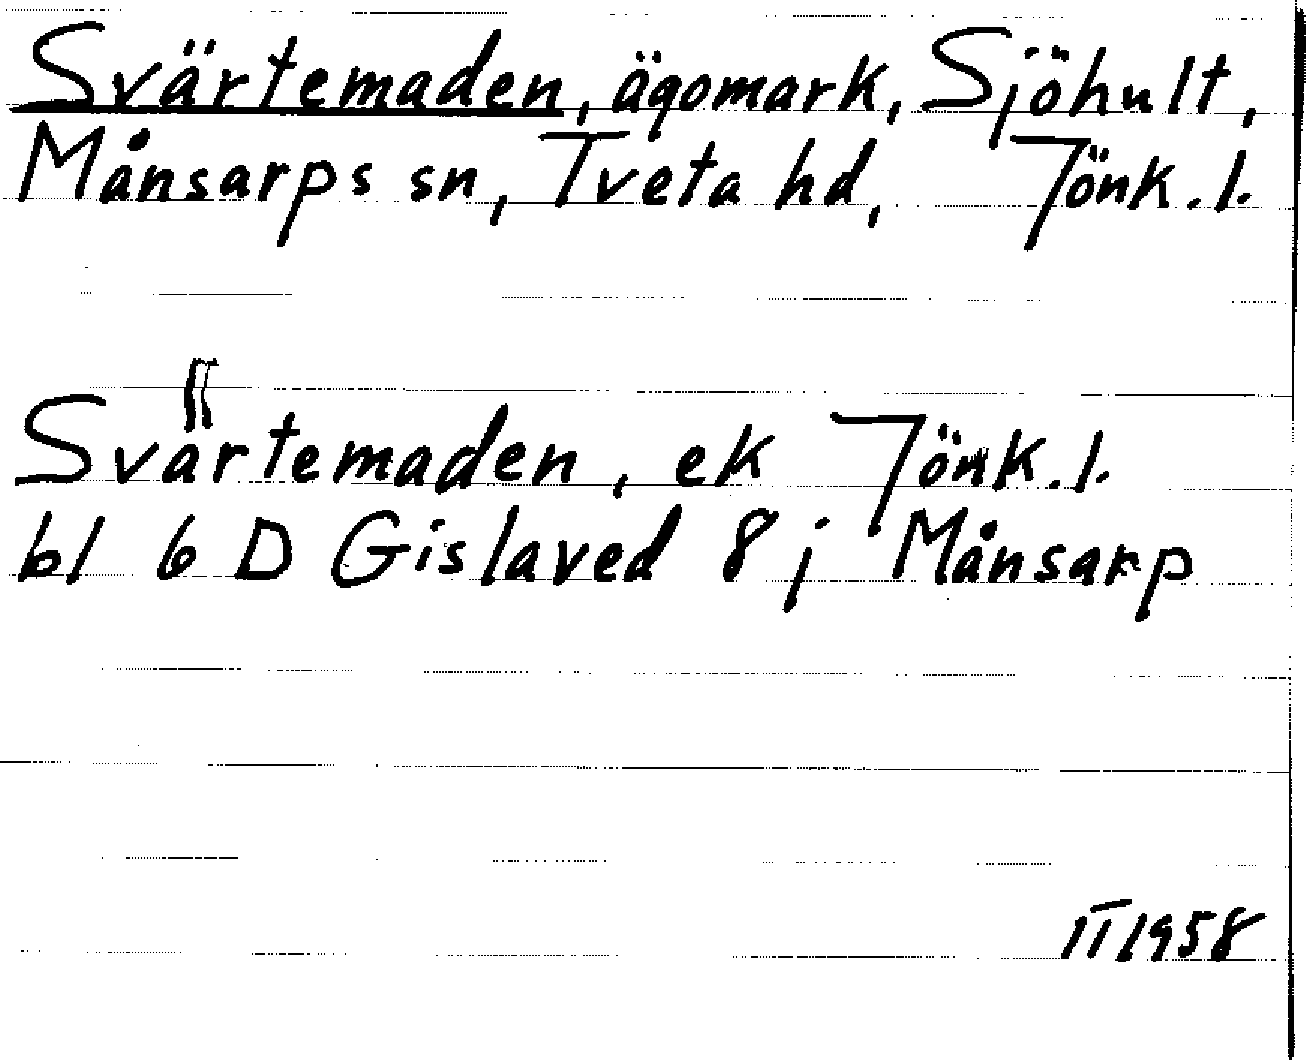 Svärtemaden, ägomark, Sjöhult,
Månsarps sn, Tveta hd, Jönk.l.
Svärtemaden, ek Jönk.l.
bl 6 D Gislaved 8 j Månsarp
II 1958